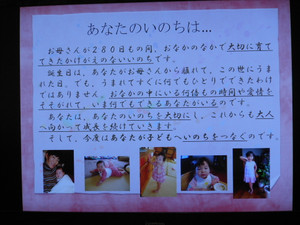 あなたのいのちは…
お母さんが２８０日もの間、おなかのなかで大切に育て
てきたかけがえのないいのちです。
誕生日は、あなたがお母さんから離れて、この世にうま
れた日、でも、うまれてすぐに何でもひとりでできたわけ
ではありません。おなかの中にいる何倍もの時間や愛情を
そそがれて、いま何でもできるあなたがいるのです。
あなたは、あなたのいのちを大切にし、これからも大人
へ向かって成長を続けていきます。
そして、今度はあなたが子どもへいのちをつなぐのです。